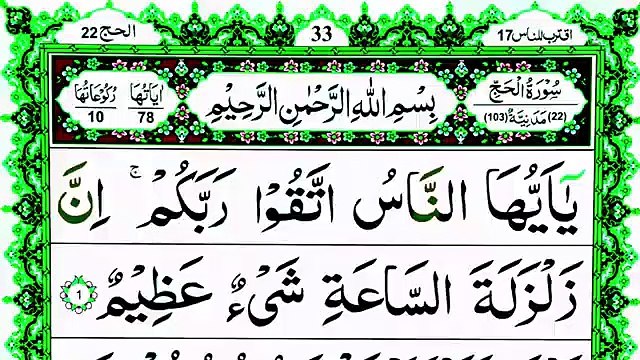 اقترب للناس 17
33
الحج 22
سُوْرَةُ الْحَجِّ
(22) مَدَنِيَّةٌ (103)
بِسْمِ اللّٰهِ الرَّحْمٰنِ الرَّحِيْمِ
اٰيَاتُهَا 78
رُكُوْعَاتُهَا 10
يٰۤاَيُّهَا النَّاسُ اتَّقُوْا رَبَّكُمْ ۚ اِنَّ
زَلْزَلَةَ السَّاعَةِ شَيْءٌ عَظِيْمٌ ١